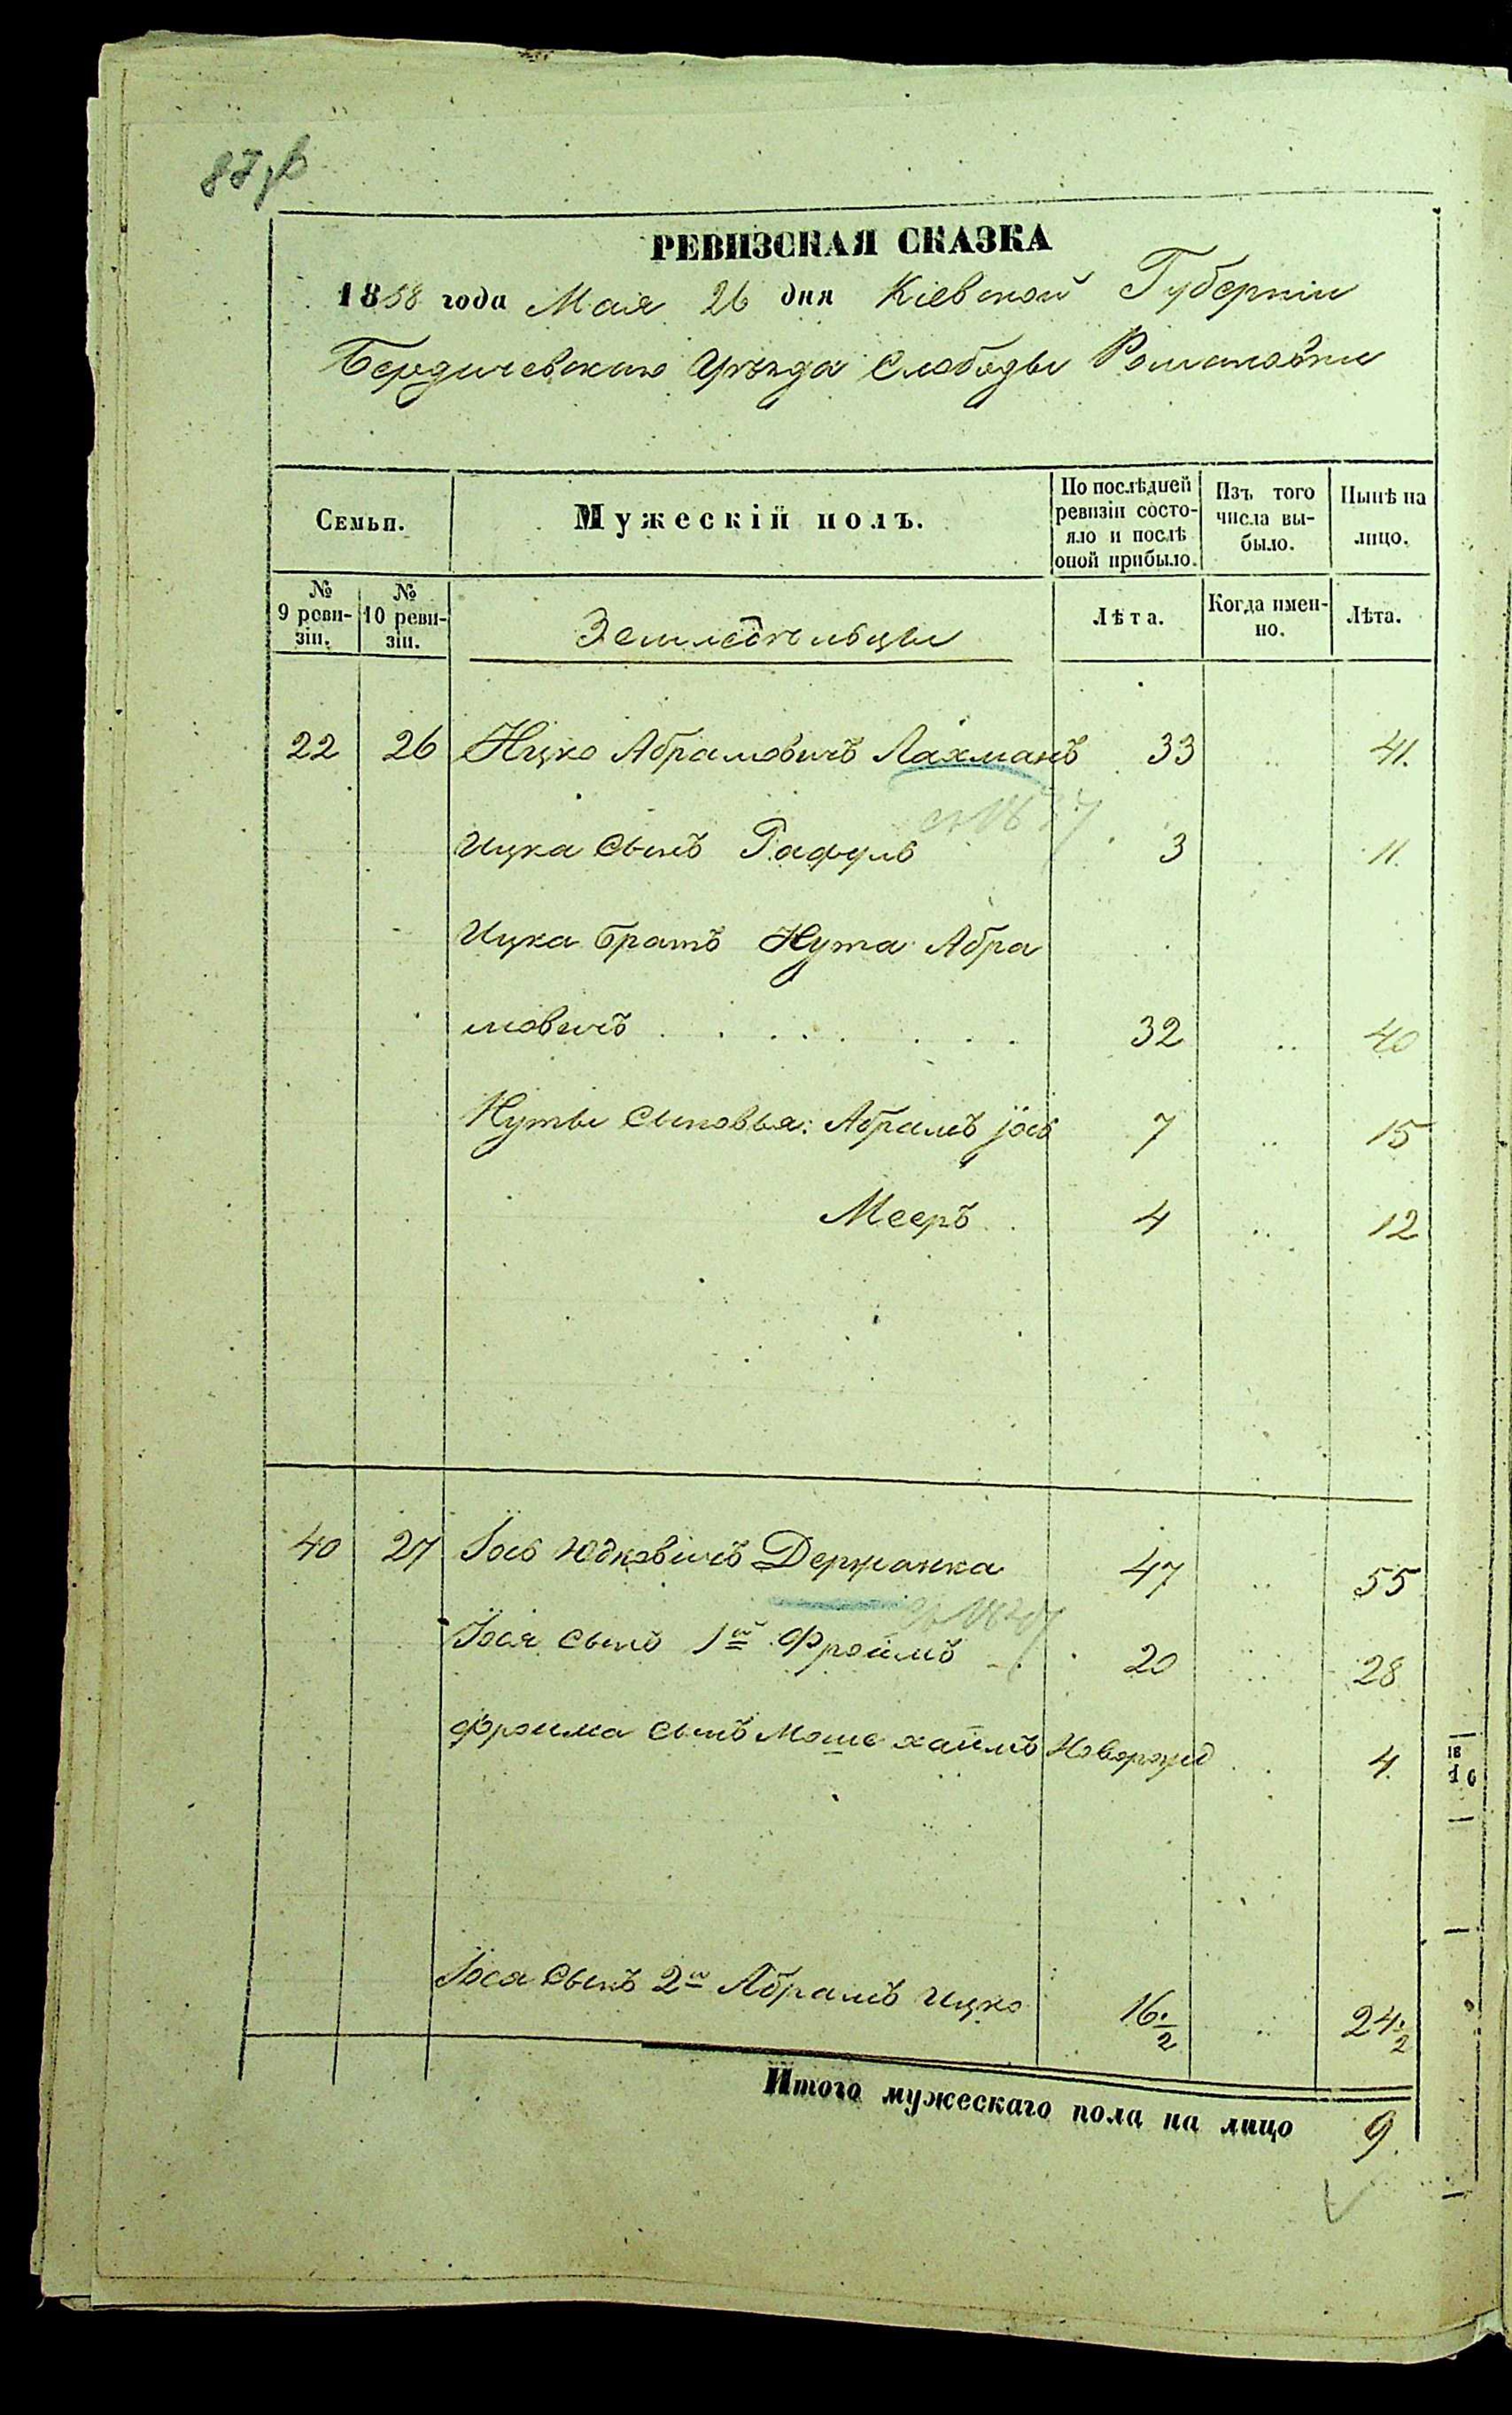 РЕВИЗСКАЯ СКАЗКА
1858 года Мая 26 дня Кіевской Губерніи
Бердичевскаго Уѣзда Слободы Романовки
Семьи.
Мужескій полъ.
По послѣдней ревизіи состояло и послѣ оной прибыло.
Изъ того числа выбыло.
Нынѣ на лицо.
№ 9 реви-зіи.
№ 10 реви-зіи.
Земледѣльцы
Лѣта.
Когда имен-но.
Лѣта.
22 26 Ицко Абрамовичъ Лахманъ 33 41.
Ицка сынъ Рафулъ 3 11.
Ицка братъ Нута Абра
мовичъ 32 40
Нуты сыновья: Абрамъ Іось 7 15
Мееръ 4 12
40 27 Іось Юдковичъ Держанка 47 55
Іося сынъ 1й Фроимъ 20 28
Фроима сынъ Моше Хаимъ Новорожд 4.
Іося сынъ 2й Абрамъ Ицко 16 1/2 24 1/2
Итого мужескаго пола на лицо 9.